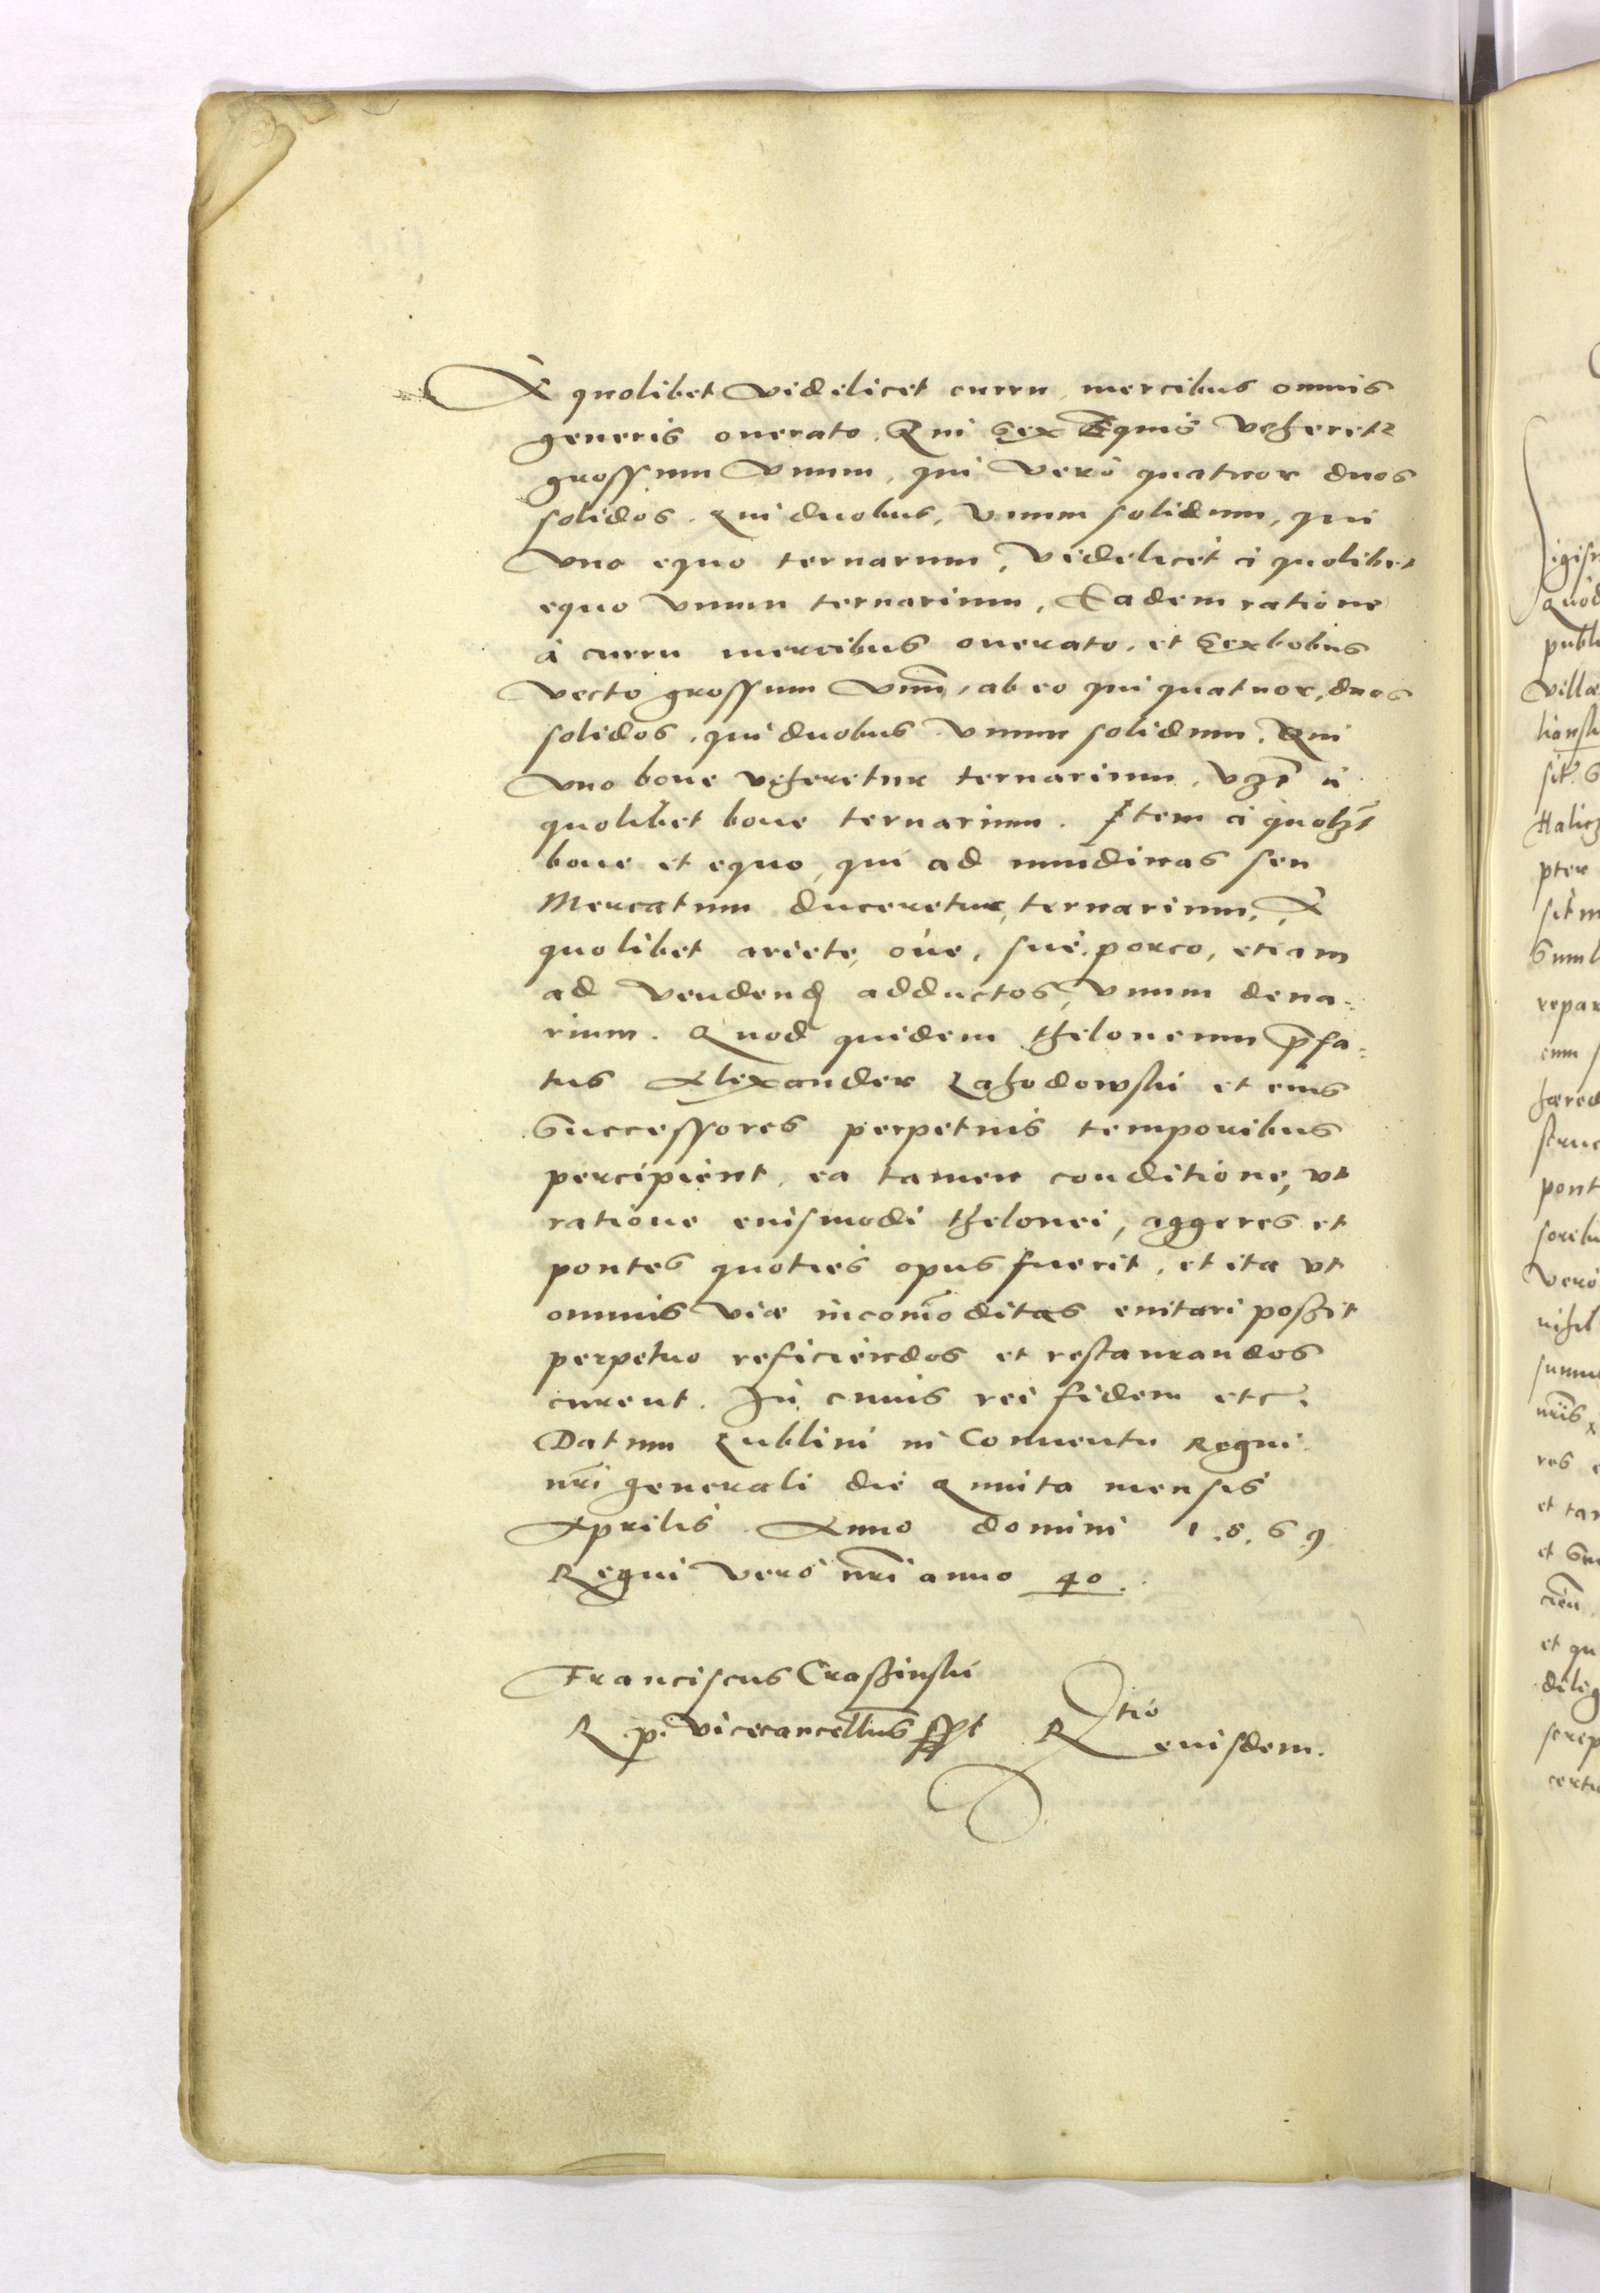 A quolibet videlicet curru, mercibus omnis
generis onerato. Qui sex Equis veheretr
grossum vnum, qui vero quatuor duos
solidos. Qui duobus, vnum solidum, qui
vno equo ternarum, videlicet à quolibet
equo vnum ternarium, Eadem ratione
à curru mercibus onerato, et sex bobus
vecto grossum vnũ, ab eo qui quatuor, duos
solidos, qui duobus vnum solidum. Qui
vno boue veheretur ternarium, vzt à
quolibet boue ternarium. Item à quolzt
boue et equo, qui ad nundinas seu
Mercatum duceretur, ternarium, A
quolibet ariete, oue, sue, porco, etiam
ad vendend adductos, vnum dena-
rium. Quod quidem theloneum p̃fa-
tus Alexander Lahodowski et eius
Successores perpetuis temporibus
percipient, ea tamen conditione, vt
ratione euismodi thelonei, aggeres et
pontes quoties opus fuerit, et ita vt
omnis viæ incom̃oditas euitari possit
perpetuo reficiendos et restaurandos
curent. In cuius rei fidem etc.
Datum Lublini in Conuentu Regni
nr̃i generali die Quinta mensis
Aprilis Anno domini 1.5.6.9.
Regni vero nr̃i anno 40.
Franciscus Crassinski
R. p. Vicecancellarius sspt
Rtio
euisdem.
igis
Quod
publi
villæ
lionsk
sit
Halicz
pter
sit m
repar
eum
hæred
struc
pont
vero
nihil
summ
res
et tan
et qu
delig